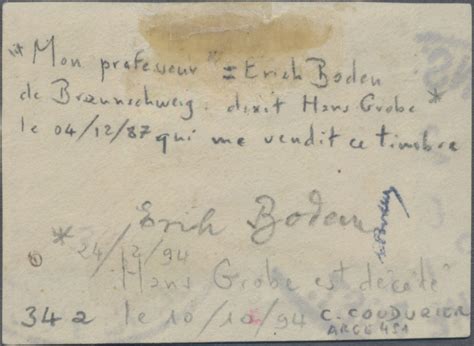 "Mon professeur" = Erich Boden
de Braunschweig. dixit Hans Grobe *
le 04/12/87 qui me vendit ce timbre
Erich Boden
* 24/2/94
Hans Grobe est décédé
34 a le 10/10/94 C. COUDURIER
ARGE 451